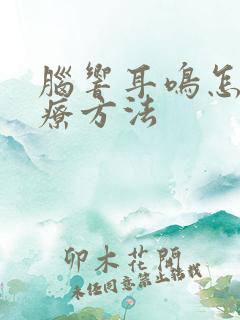 腦響耳鳴怎
療方法
卯木花開
未经同意禁止搭载